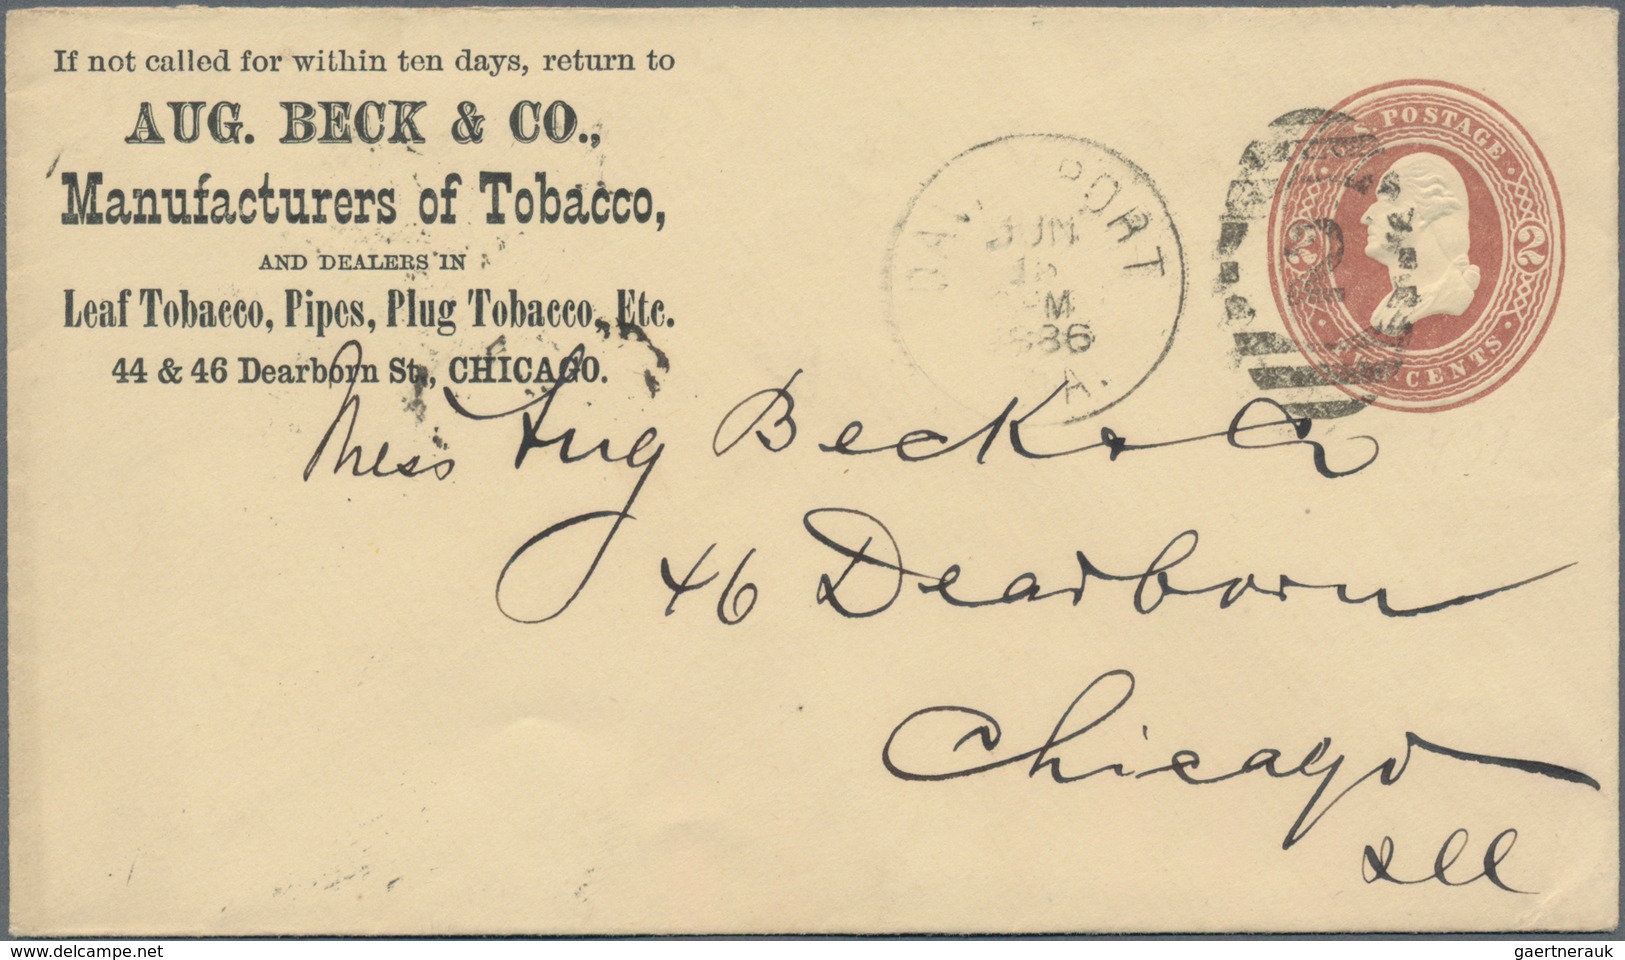 If not called for within ten days, return to
AUG. BECK & CO.,
Manufacturers of Tobacco,
AND DEALERS IN
Leaf Tobacco, Pipes, Plug Tobacco, Etc.
44 & 46 Dearborn St., CHICAGO.
PORT
JUN
M
A.
POSTAGE
2 2 2
CENTS
Mess Aug Beck & Co
46 Dearborn
Chicago
Ill
www.delcampe.net
gaertnerauk